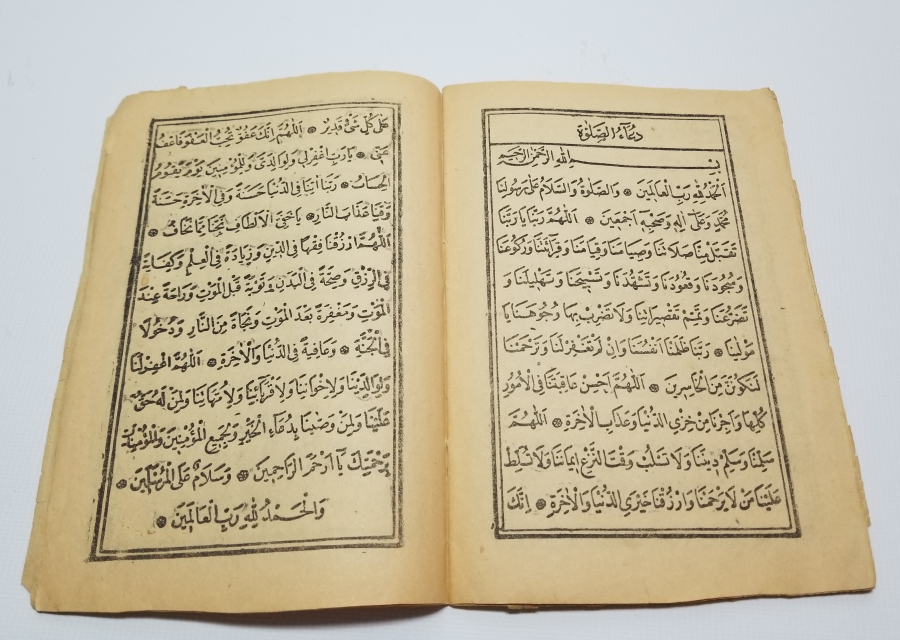 دُعَآءُ الصَّلٰوةِ
بِسْــــمِ اللهِ الرَّحْمٰنِ الرَّحِيمِ
اَلْحَمْدُ لِلّٰهِ رَبِّ الْعَالَمِينَ ۞ وَالصَّلٰوةُ وَالسَّلَامُ عَلٰى رَسُولِنَا
مُحَمَّدٍ وَعَلٰٓى اٰلِهِ وَصَحْبِهِ اَجْمَعِينَ ۞ اَللّٰهُمَّ رَبَّنَا يَا رَبَّنَا
تَقَبَّلْ مِنَّا صَلَاتَنَا وَصِيَامَنَا وَقِيَامَنَا وَقِرَآئَتَنَا وَرُكُوعَنَا
وَسُجُودَنَا وَقُعُودَنَا وَتَشَهُّدَنَا وَتَسْبِيحَنَا وَتَهْلِيلَنَا وَ
تَضَرُّعَنَا وَتَمِّمْ تَقْصِيرَاتِنَا وَلَا تَضْرِبْ بِهَا وُجُوهَنَا يَا
مَوْلٰينَا ۞ رَبَّنَا ظَلَمْنَا اَنْفُسَنَا وَاِنْ لَمْ تَغْفِرْ لَنَا وَتَرْحَمْنَا
لَنَكُونَنَّ مِنَ الْخَاسِرِينَ ۞ اَللّٰهُمَّ اَحْسِنْ عَاقِبَتَنَا فِى الْاُمُورِ
كُلِّهَا وَاَجِرْنَا مِنْ خِزْىِ الدُّنْيَا وَعَذَابِ الْاٰخِرَةِ ۞ اَللّٰهُمَّ
سَلِّمْنَا وَسَلِّمْ دِينَنَا وَلَا تَسْلُبْ وَقْتَ النَّزْعِ اِيمَانَنَا وَلَا تُسَلِّطْ
عَلَيْنَا مَنْ لَا يَرْحَمُنَا وَارْزُقْنَا خَيْرَىِ الدُّنْيَا وَالْاٰخِرَةِ ۞ اِنَّكَ
عَلٰى كُلِّ شَىْءٍ قَدِيرٌ ۞ اَللّٰهُمَّ اِنَّكَ عَفُوٌّ تُحِبُّ الْعَفْوَ فَاعْفُ
عَنِّى ۞ يَا رَبِّ اغْفِرْلِى وَلِوَالِدَىَّ وَلِلْمُؤْمِنِينَ يَوْمَ يَقُومُ
الْحِسَابُ ۞ رَبَّنَا اٰتِنَا فِى الدُّنْيَا حَسَنَةً وَفِى الْاٰخِرَةِ حَسَنَةً
وَقِنَا عَذَابَ النَّارِ ۞ يَا خَفِىَّ الْاَلْطَافِ نَجِّنَا مِمَّا نَخَافُ ۞
اَللّٰهُمَّ ارْزُقْنَا فِقْهًا فِى الدِّينِ وَزِيَادَةً فِى الْعِلْمِ وَكِفَايَةً
فِى الرِّزْقِ وَصِحَّةً فِى الْبَدَنِ وَتَوْبَةً قَبْلَ الْمَوْتِ وَرَاحَةً عِنْدَ
الْمَوْتِ وَمَغْفِرَةً بَعْدَ الْمَوْتِ وَنَجَاةً مِنَ النَّارِ وَدُخُولًا
فِى الْجَنَّةِ ۞ وَعَافِيَةً فِى الدُّنْيَا وَالْاٰخِرَةِ ۞ اَللّٰهُمَّ اغْفِرْلَنَا
وَلِوَالِدَيْنَا وَلِاِخْوَانِنَا وَلِاَقْرِبَائِنَا وَلِاُمَّهَاتِنَا وَلِمَنْ لَهُ حَقٌّ
عَلَيْنَا وَلِمَنْ وَصّٰينَا بِدُعَاءِ الْخَيْرِ وَلِجَمِيعِ الْمُؤْمِنِينَ وَالْمُؤْمِنَةِ
بِرَحْمَتِكَ يَآ اَرْحَمَ الرَّاحِمِينَ ۞ وَسَلَامٌ عَلَى الْمُرْسَلِينَ ۞
وَالْحَمْدُ لِلّٰهِ رَبِّ الْعَالَمِينَ ۞